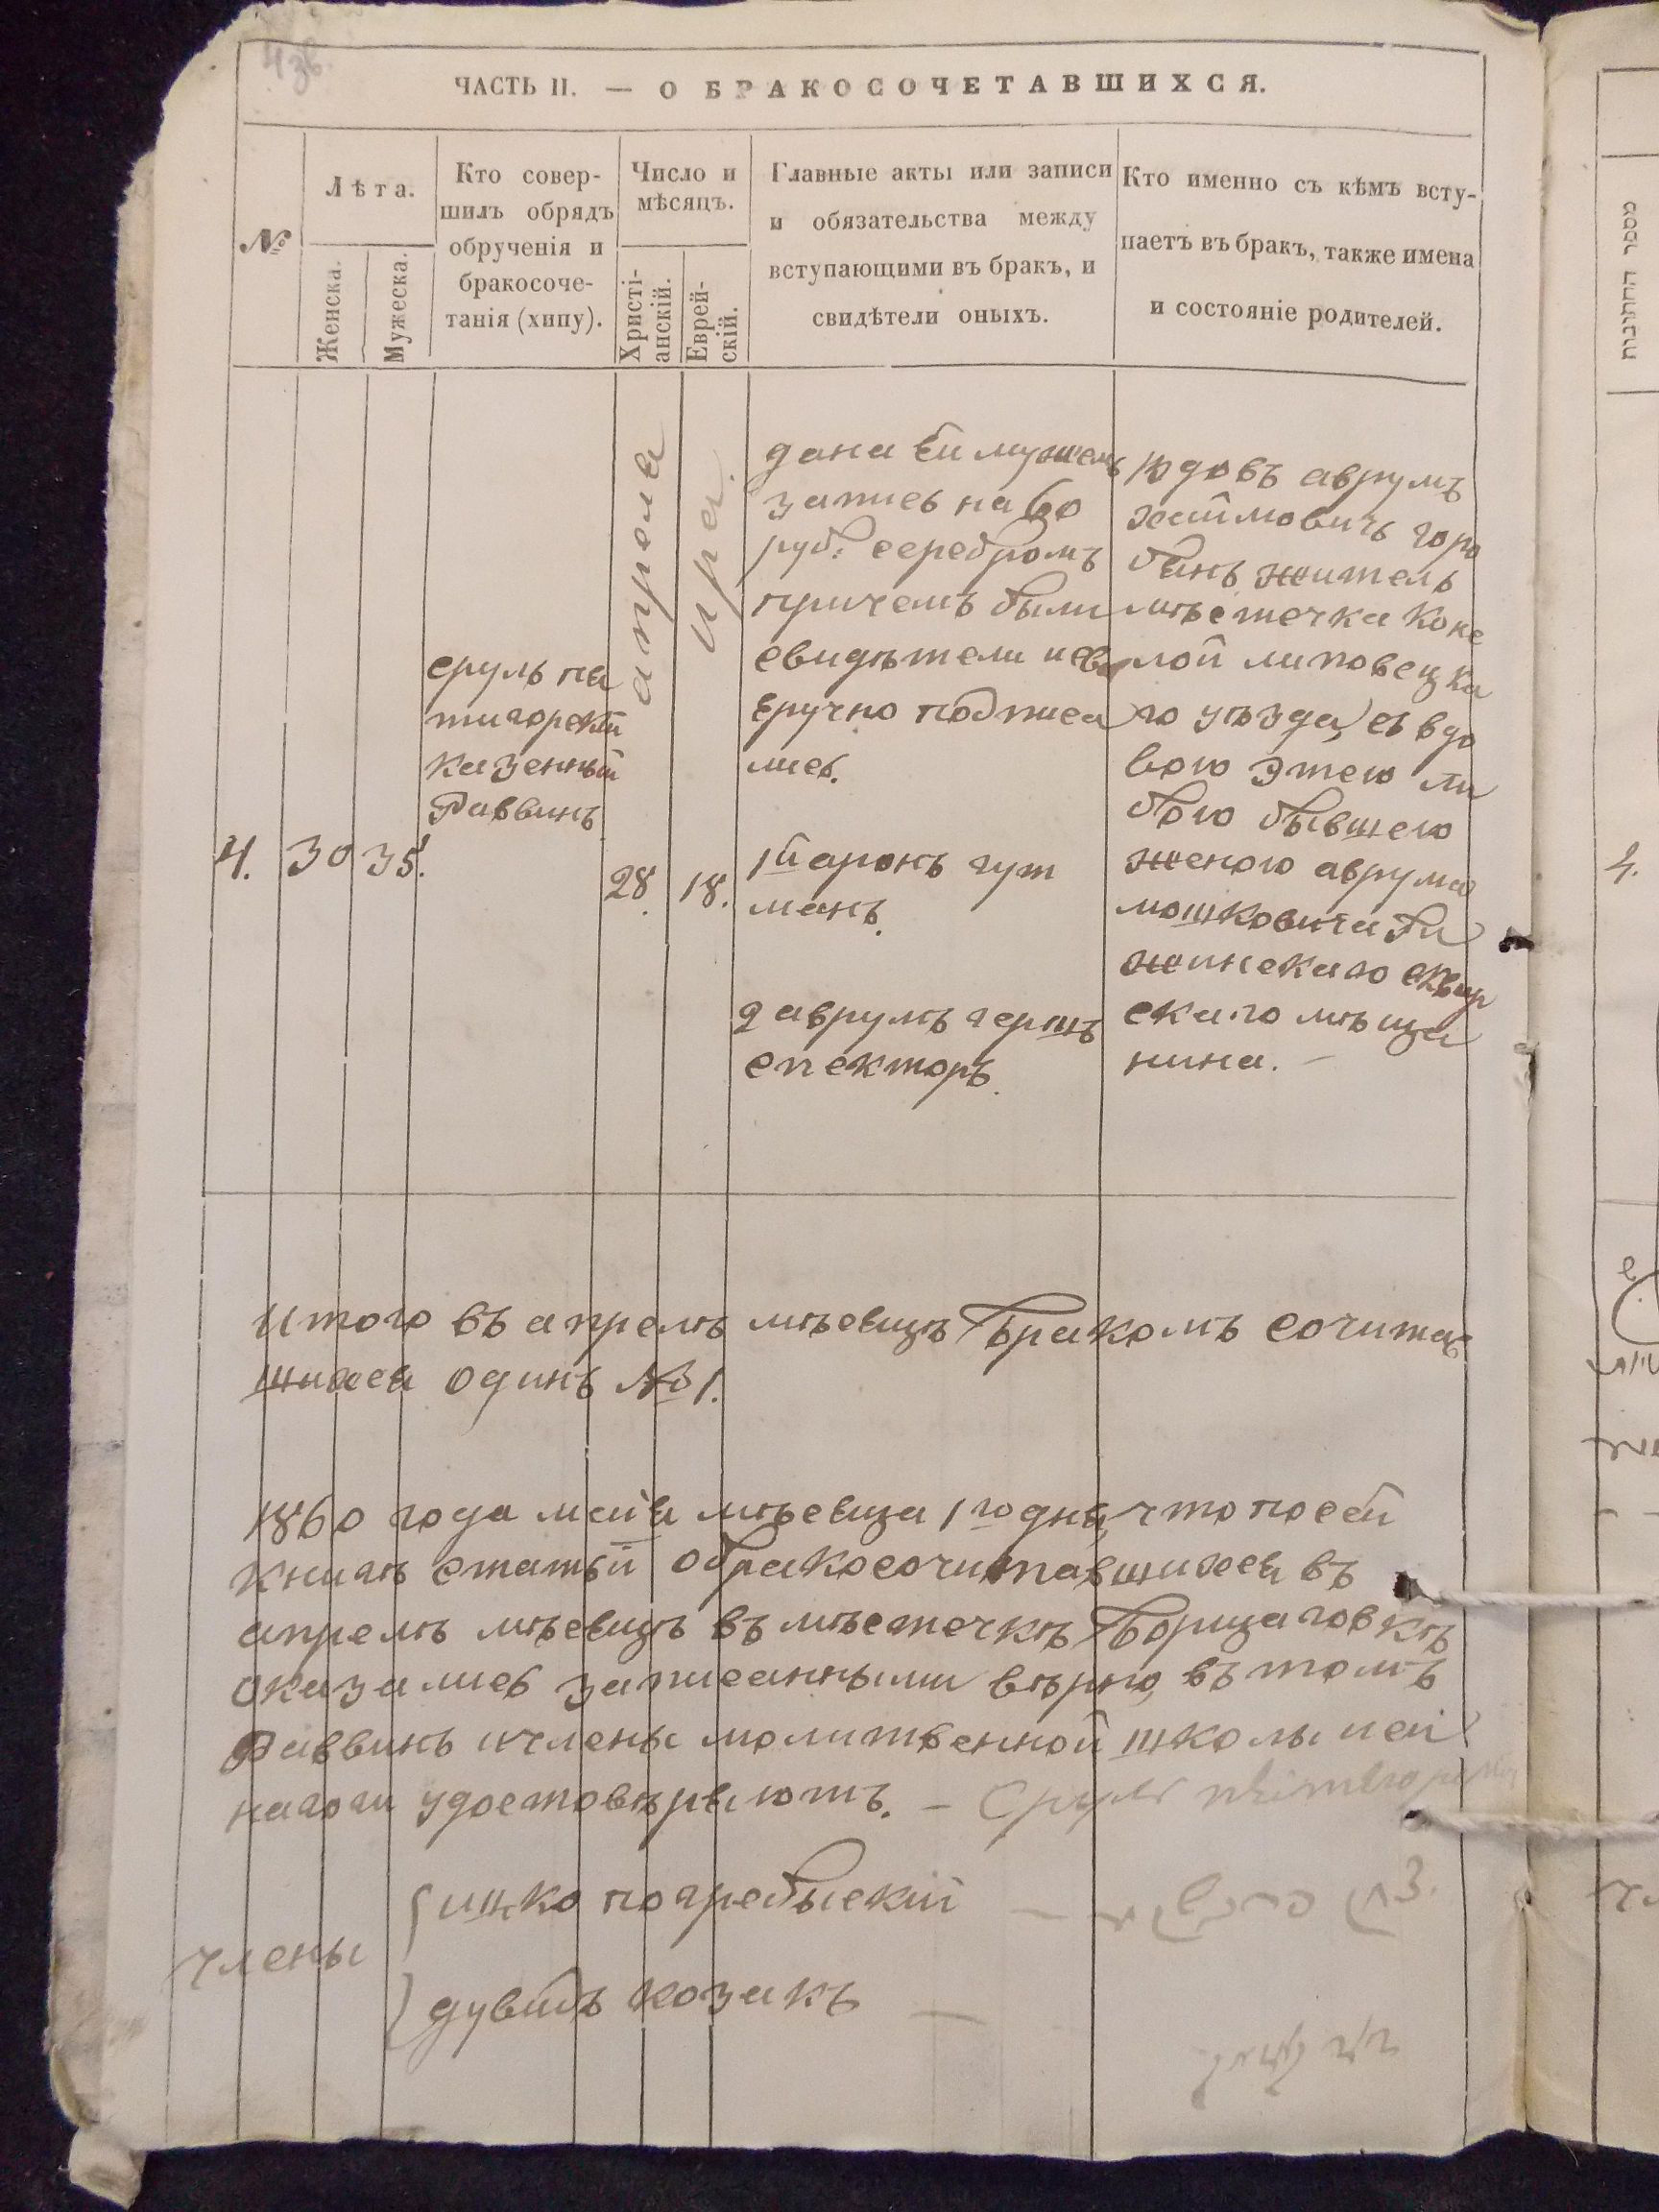 ЧАСТЬ II. — О БРАКОСОЧЕТАВШИХСЯ.
№
Лѣта.
Женска.
Мужеска.
Кто совер-
шилъ обрядъ
обрученія и
бракосоче-
танія (хипу).
Число и
мѣсяцъ.
Христі-
анскій.
Еврей-
скій.
Главные акты или записи
и обязательства между
вступающими въ бракъ, и
свидѣтели оныхъ.
Кто именно съ кѣмъ всту-
паетъ въ бракъ, также имена
и состояніе родителей.
4.
30
35.
сруль пя
тигорскій
казенный
Раввинъ
апреля
28
ира.
18.
дана ей мужемъ
запись на 60
руб: серебромъ
причемъ были
свидѣтели исво
еручно подписа
лись.
1й аронъ гут
манъ.
2 аврумъ гершъ
спекторъ.
Юдовъ аврумъ
хаймовичъ горо
бецъ житель
мѣстечка коне
лой липовецка
го уѣзда, съ вдо
вою Этею ли
бою бывшею
женою аврума
мошковича ру
жинскаго сквир
скаго мѣща
нина. —
Итого въ апрелѣ мѣсяцѣ бракомъ сочитав
шихся одинъ №1.
1860 года маія мѣсяца 1го дня, что посей
книгѣ статьи обракосочитавшихся въ
апрелѣ мѣсяцѣ въ мѣстечкѣ борщаговкѣ
оказались записанными вѣрно, въ томъ
Раввинъ ичлены молитвенной школы исей
нагоги удостовѣряютъ. — Сруль пятигорскій
члены
ицко погребыскій —
дувидъ козакъ —
מספר החתונות
4.